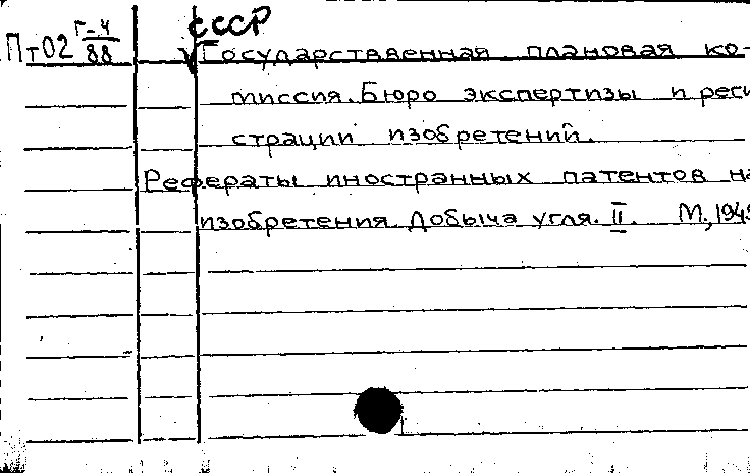 СССР
Пт02 Г-4/88 Государственная плановая ко-
миссия. Бюро экспертизы и реги
страции изобретений.
Рефераты иностранных патентов на
изобретения. Добыча угля. II. М., 194